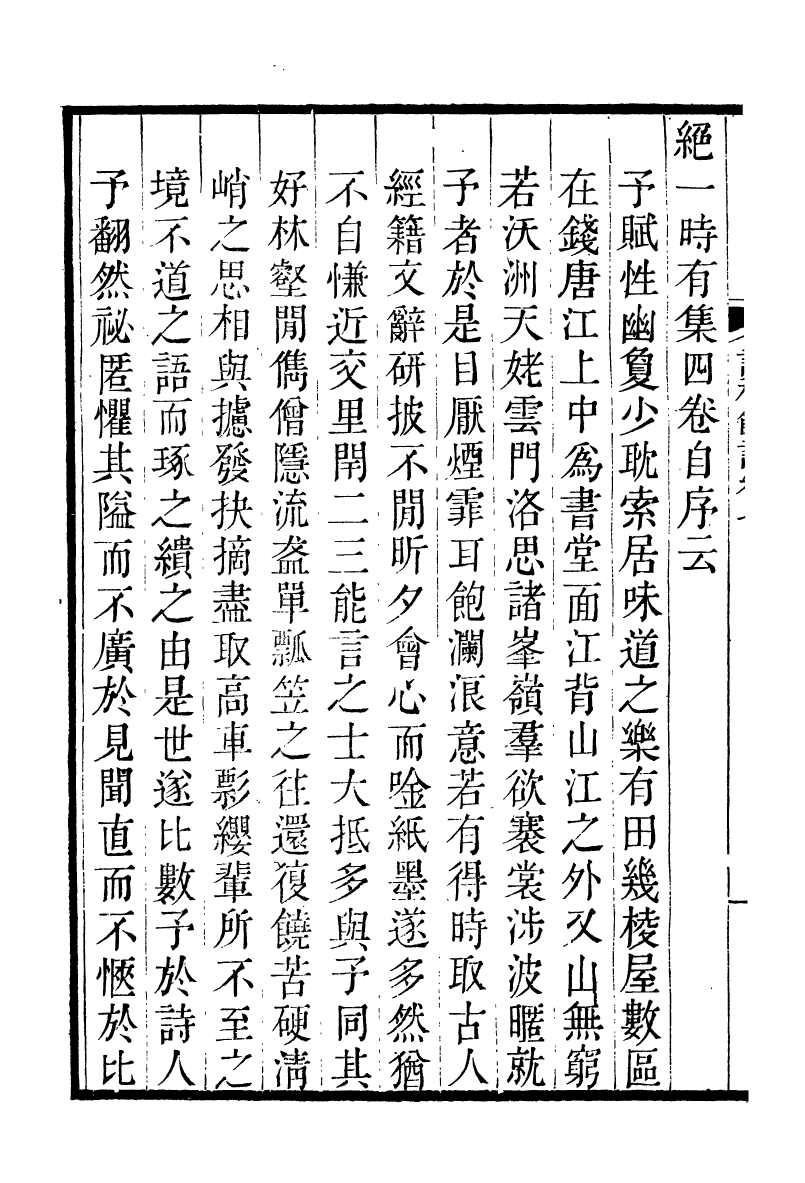 絕一時有集四卷自序云
予賦性幽夐少耽索居味道之樂有田幾棱屋數區
在錢唐江上中爲書堂面江背山江之外又山無窮
若沃洲天姥雲門洛思諸峯嶺羣欲褰裳涉波暱就
予者於是目厭煙霏耳飽瀾浪意若有得時取古人
經籍文辭硏披不閒昕夕會心而唫紙墨遂多然猶
不自慊近交里閈二三能言之士大抵多與予同其
好林壑閒儁僧隱流盋單瓢笠之往還復饒苦硬淸
峭之思相與攄發抉摘盡取高車影纓輩所不至之
境不道之語而琢之繢之由是世遂比數予於詩人
予翻然祕匿懼其隘而不廣於見聞直而不愜於比